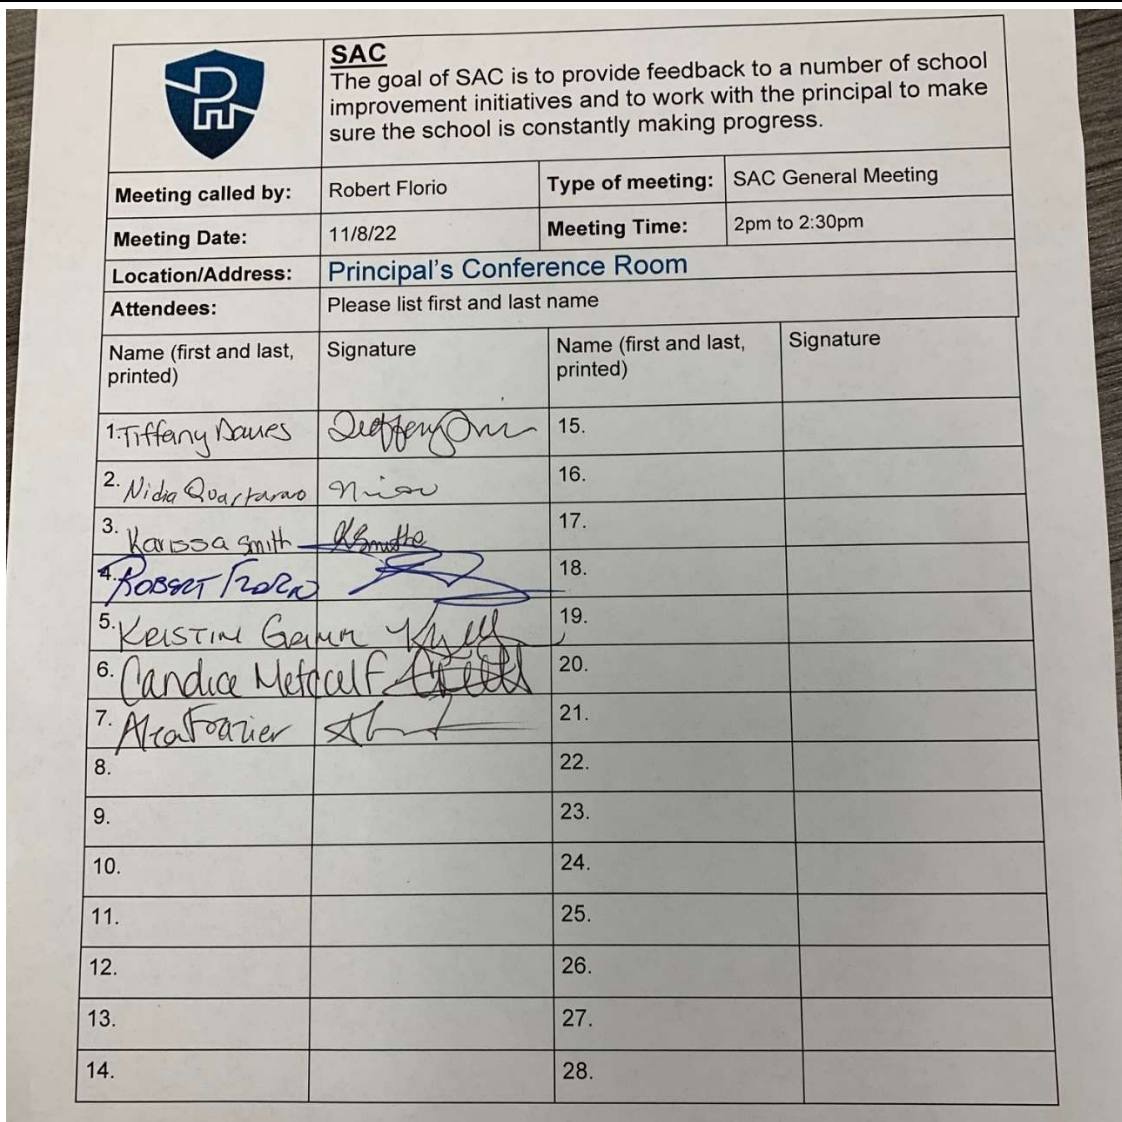 SAC
The goal of SAC is to provide feedback to a number of school
improvement initiatives and to work with the principal to make
sure the school is constantly making progress.
Meeting called by: Robert Florio Type of meeting: SAC General Meeting
Meeting Date: 11/8/22 Meeting Time: 2pm to 2:30pm
Location/Address: Principal's Conference Room
Attendees: Please list first and last name
Name (first and last, Signature Name (first and last, Signature
printed) printed)
1. Tiffany 15.
2. Nidia 16.
3. Karissa Smith KSmith 17.
4. ROBERT FLORIO 18.
5. KRISTIN 19.
6. Candice Metcalf 20.
7. Frazier 21.
8. 22.
9. 23.
10. 24.
11. 25.
12. 26.
13. 27.
14. 28.